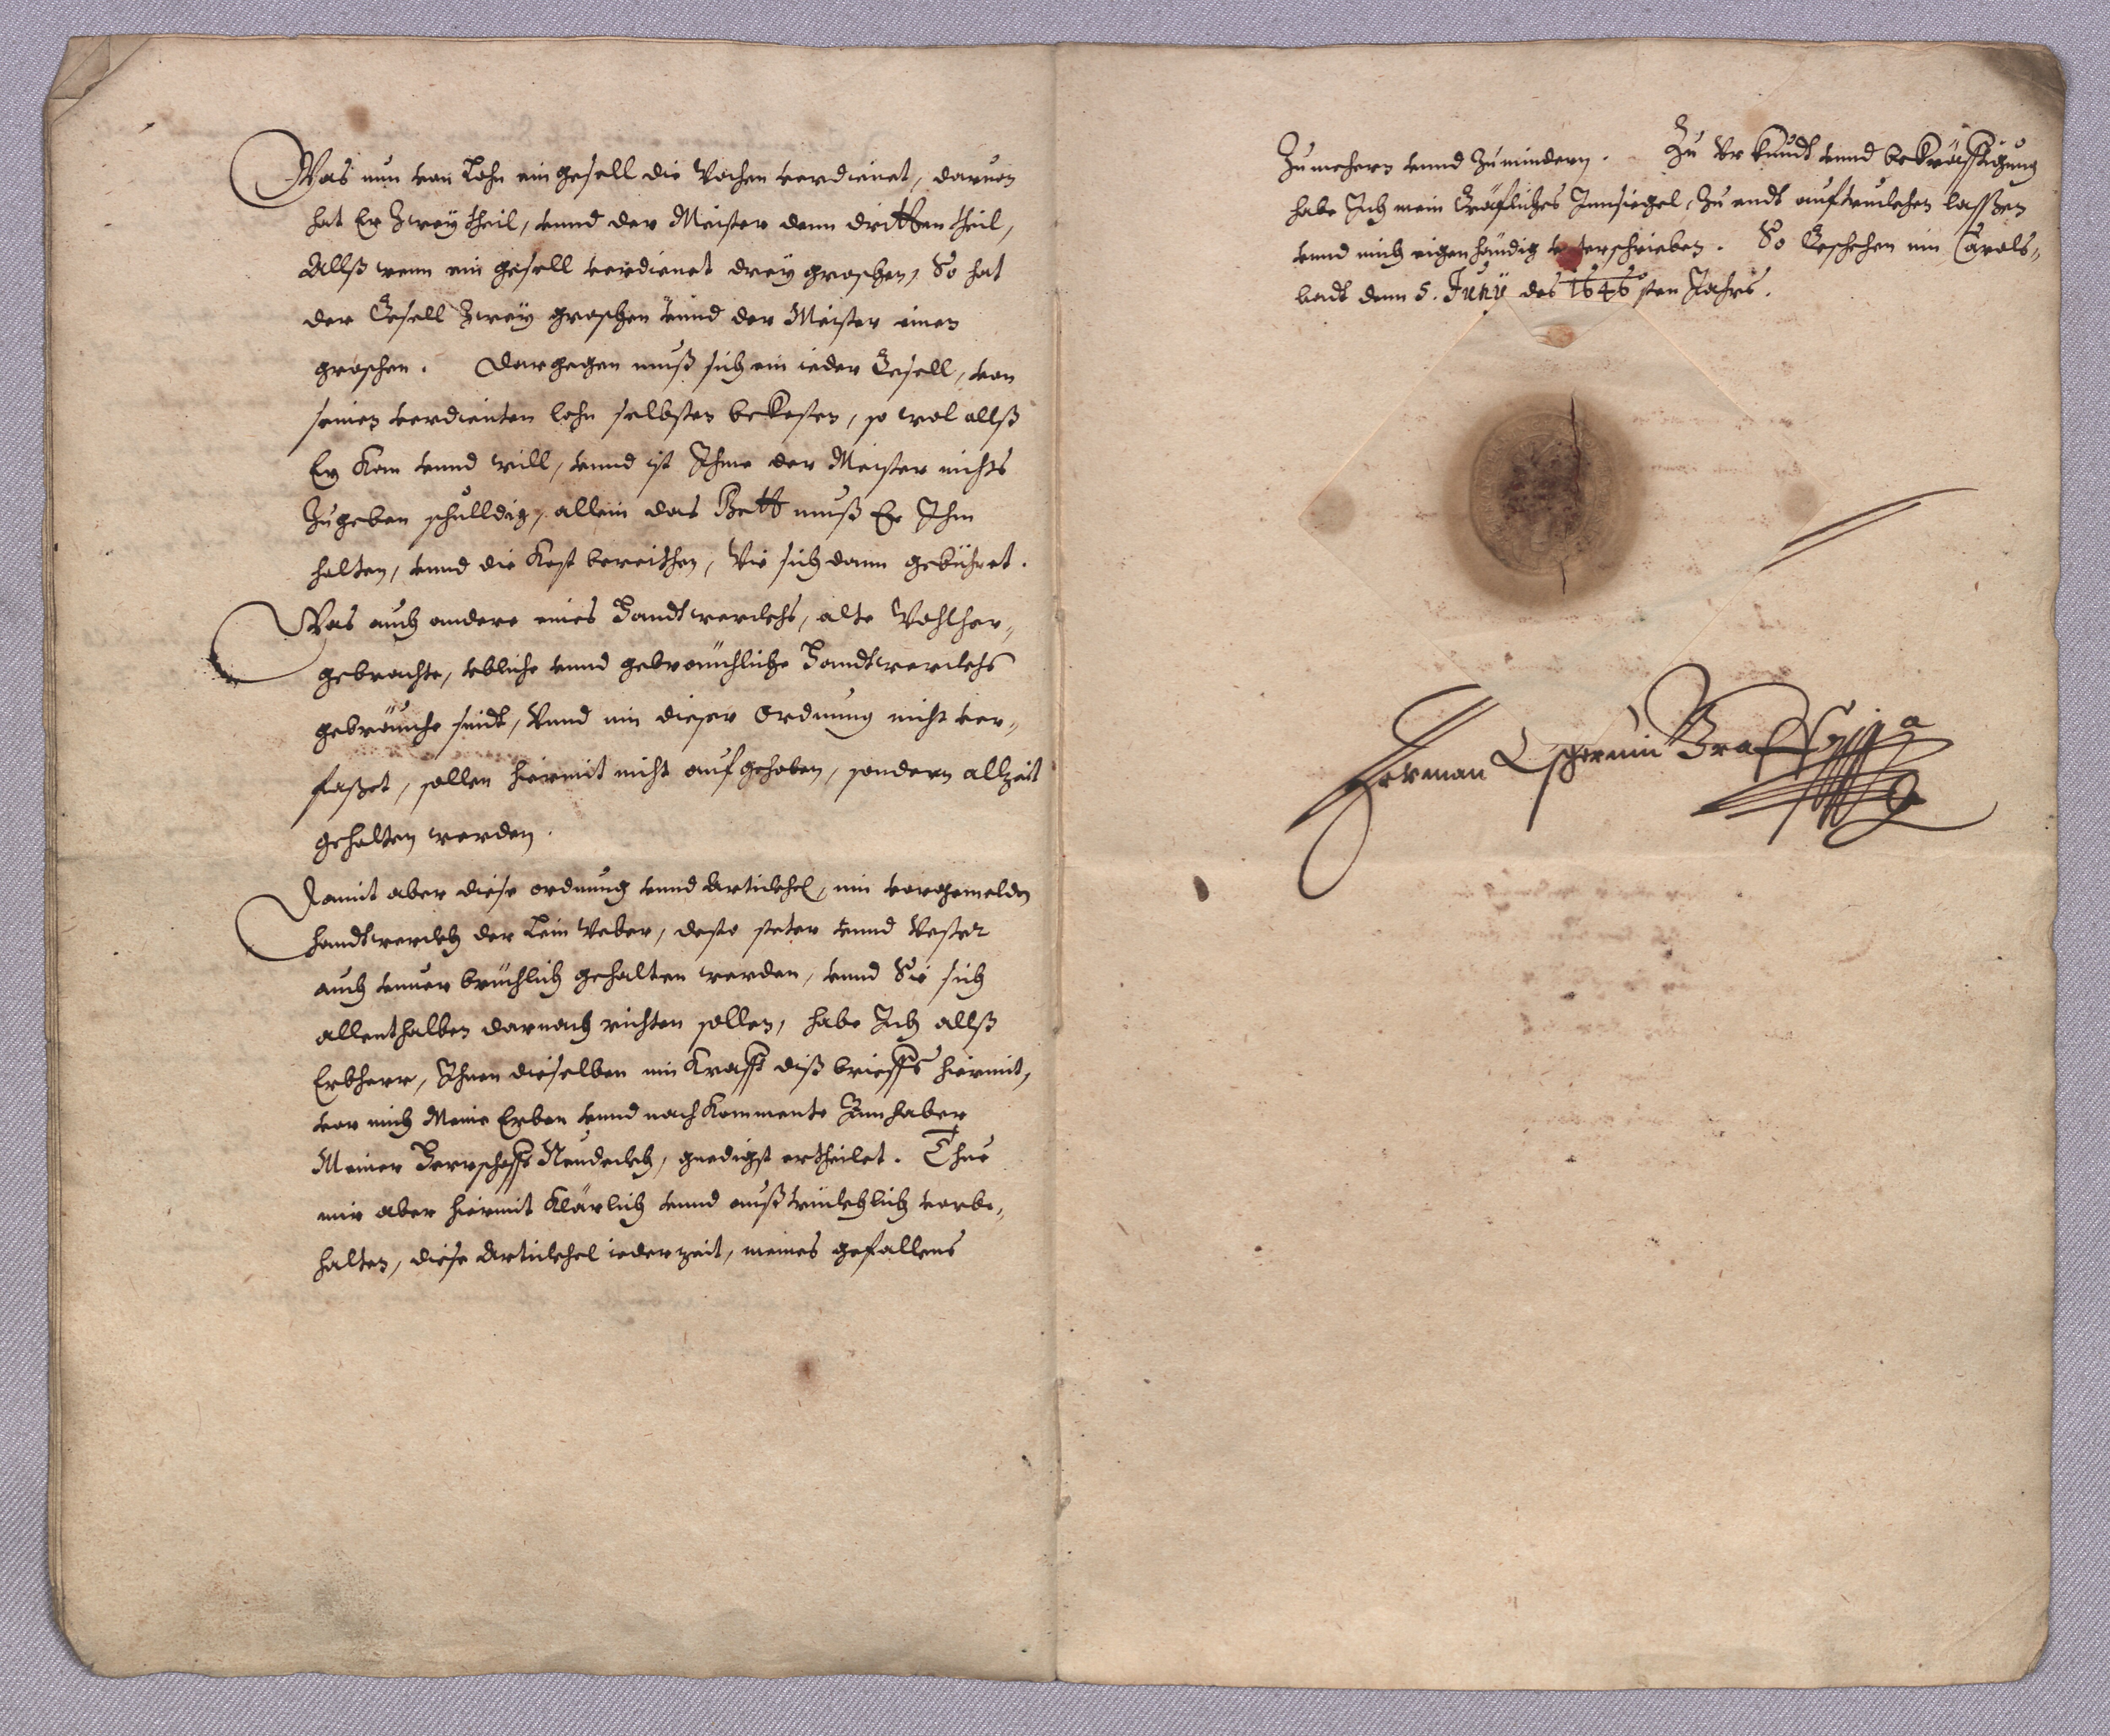 Was nun von Lohn ein gesell die Wochen verdienet, darvon
hat Er Zwey theil, vnnd der Meister denn dritten theil,
Allß wenn ein gesell verdienet drey groschen, So hat
der Gesell Zwey groschen vnnd der Meister einen
groschen. Dargegen muß sich ein ieder Gesell, von
seinen verdienten lohn selbsten beKosten, so wol allß
Er Kan vnnd will, vnnd ist Ihme der Meister nichts
Zugeben schulldig, allein das Bett muß Er Ihm
halten, vnnd die Kost bereithen, Wie sich dann gebühret.
Was auch andere eines Handtwerckhs, alte Wohlher-
gebrachte, vbliche vnnd gebreuchliche Handtwerckhs
gebräuche seindt, Vnnd inn dieser Ordnung nicht ver-
faßet, sollen hiermit nicht aufgehoben, sondern allzeit
gehalten werden.
Damit aber diese ordnung vnnd Artickhel, inn vorgemelden
handtwerckh der Lein Weber, desto steter vnnd Vester
auch vnuerbrüchlich gehalten werden, vnnd Sie sich
allenthalben darnach richten sollen, habe Ich allß
Erbherr, Ihnen dieselben inn Krafft diß brieffs hiermit,
vor mich Meine Erben vnnd nachKommente Innhaber
Meiner Herrschafft Neudeckh, gnedigst ertheilet. Thue
mir aber hiermit Klärlich vnnd außtrücklich vorbe-
halten, diese Artickhel iederzeit, meines gefallens
Zu mehern vnnd Zu mindern. Zu Vrkundt vnnd beKräfftigung
habe Ich mein Gräfliches Innsiegel, Zu endt auftruckhen lasßen
vnnd mich eigenhändig vnterschrieben. So Geschehen inn Carols-
badt denn 5. Juny des 1646sten Jahrs.
Herman Czernin Graff